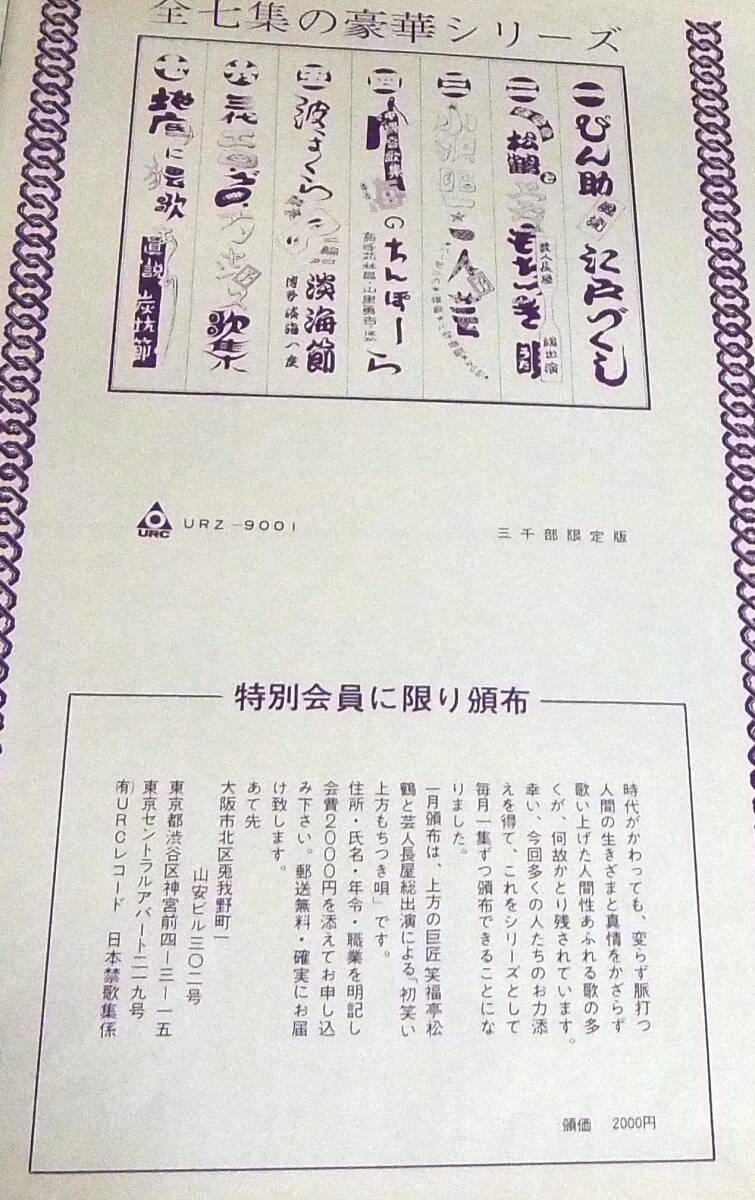 全七集の豪華シリーズ
一 びん助 江戸づくし
二 松鶴と もちつきうた 芸人長屋 総出演
三 小沢昭一 一人
四 海のちんぼーら
五 波まくら 淡海節 博多淡海八度
六 三代 歌集
七 地底に 猥歌 真説 炭坑節
URC URZ-9001
三千部限定版
特別会員に限り頒布
時代がかわっても、変らず脈打つ
人間の生きざまと真情をかざらず
歌い上げた人間性あふれる歌の多
くが、何故かとり残されています。
幸い、今回多くの人たちのお力添
えを得て、これをシリーズとして
毎月一集ずつ頒布できることにな
りました。
一月頒布は、上方の巨匠笑福亭松
鶴と芸人長屋総出演による「初笑い
上方もちつき唄」です。
住所・氏名・年令・職業を明記し
会費2000円を添えてお申し込
み下さい。郵送無料・確実にお届
け致します。
あて先
大阪市北区兎我野町一
山安ビル三〇二号
東京都渋谷区神宮前四ー三ー一五
東京セントラルアパート二一九号
(有)URCレコード 日本禁歌集係
頒価 2000円